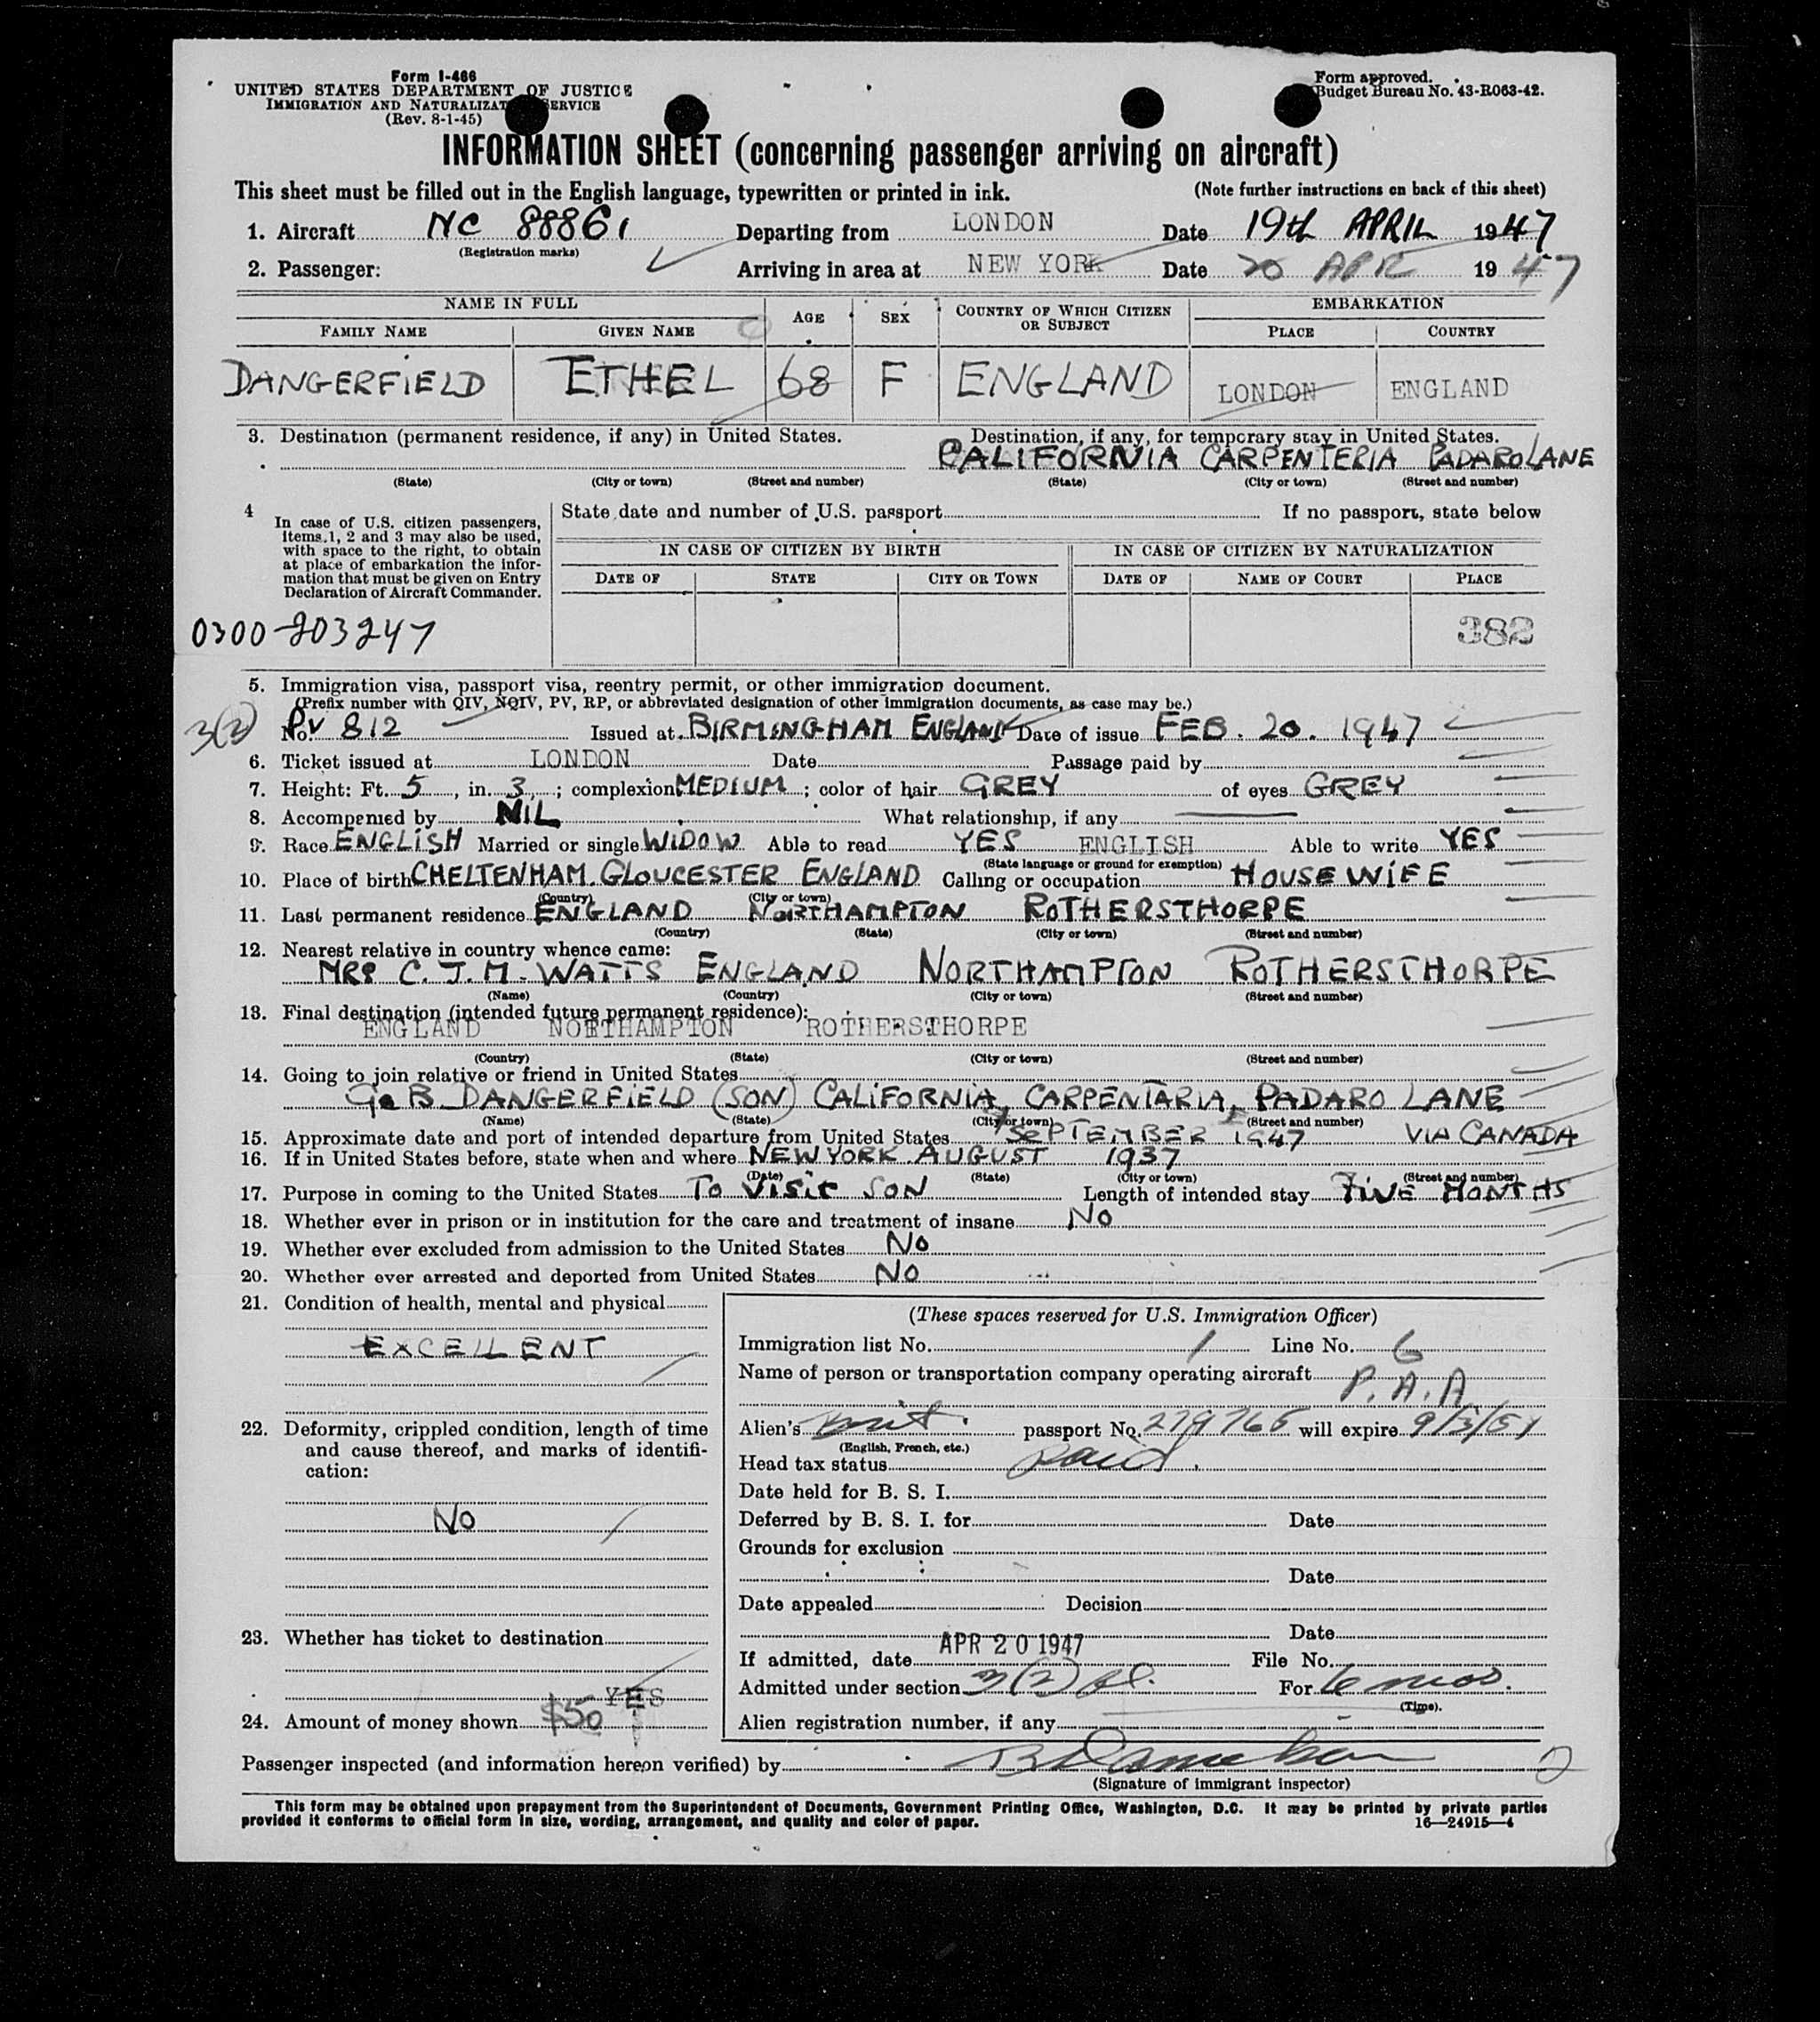 Form I-466
UNITED STATES DEPARTMENT OF JUSTICE
IMMIGRATION AND NATURALIZAT SERVICE
(Rev. 8-1-45)
Form approved.
Budget Bureau No. 43-R063-42.
INFORMATION SHEET (concerning passenger arriving on aircraft)
This sheet must be filled out in the English language, typewritten or printed in ink. (Note further instructions on back of this sheet)
1. Aircraft NC 88861 Departing from LONDON Date 19th APRIL 1947
(Registration marks)
2. Passenger: Arriving in area at NEW YORK Date 20 APR 1947
NAME IN FULL AGE SEX COUNTRY OF WHICH CITIZEN OR SUBJECT EMBARKATION
FAMILY NAME GIVEN NAME PLACE COUNTRY
DANGERFIELD ETHEL 68 F ENGLAND LONDON ENGLAND
3. Destination (permanent residence, if any) in United States. Destination, if any, for temporary stay in United States.
CALIFORNIA CARPENTERIA PADARO LANE
(State) (City or town) (Street and number) (State) (City or town) (Street and number)
4 In case of U.S. citizen passengers, items 1, 2 and 3 may also be used, with space to the right, to obtain at place of embarkation the information that must be given on Entry Declaration of Aircraft Commander.
State date and number of U.S. passport If no passport, state below
IN CASE OF CITIZEN BY BIRTH IN CASE OF CITIZEN BY NATURALIZATION
DATE OF STATE CITY OR TOWN DATE OF NAME OF COURT PLACE
0300-203247 382
5. Immigration visa, passport visa, reentry permit, or other immigration document.
(Prefix number with QIV, NQIV, PV, RP, or abbreviated designation of other immigration documents, as case may be.)
3(2) No. PV 812 Issued at BIRMINGHAM ENGLAND Date of issue FEB. 20. 1947
6. Ticket issued at LONDON Date Passage paid by
7. Height: Ft. 5, in. 3; complexion MEDIUM; color of hair GREY of eyes GREY
8. Accompenied by NIL What relationship, if any
9. Race ENGLISH Married or single WIDOW Able to read YES ENGLISH Able to write YES
(State language or ground for exemption)
10. Place of birth CHELTENHAM. GLOUCESTER ENGLAND Calling or occupation HOUSEWIFE
(Country) (City or town)
11. Last permanent residence ENGLAND NORTHAMPTON ROTHERSTHORPE
(Country) (State) (City or town) (Street and number)
12. Nearest relative in country whence came:
MRS C. J. M. WATTS ENGLAND NORTHAMPTON ROTHERSTHORPE
(Name) (Country) (City or town) (Street and number)
13. Final destination (intended future permanent residence):
ENGLAND NORTHAMPTON ROTHERSTHORPE
(Country) (State) (City or town) (Street and number)
14. Going to join relative or friend in United States
G.B. DANGERFIELD (SON) CALIFORNIA, CARPENTARIA, PADARO LANE
(Name) (State) (City or town) (Street and number)
15. Approximate date and port of intended departure from United States SEPTEMBER 1947 VIA CANADA
16. If in United States before, state when and where NEW YORK AUGUST 1937
(Date) (State) (City or town) (Street and number)
17. Purpose in coming to the United States TO VISIT SON Length of intended stay FIVE MONTHS
18. Whether ever in prison or in institution for the care and treatment of insane NO
19. Whether ever excluded from admission to the United States NO
20. Whether ever arrested and deported from United States NO
21. Condition of health, mental and physical
EXCELLENT
22. Deformity, crippled condition, length of time and cause thereof, and marks of identification:
NO
23. Whether has ticket to destination
YES
24. Amount of money shown $50
(These spaces reserved for U.S. Immigration Officer)
Immigration list No. 1 Line No. 6
Name of person or transportation company operating aircraft P.A.A
Alien's Brit. passport No. 279765 will expire 9/3/51
(English, French, etc.)
Head tax status Paid.
Date held for B. S. I.
Deferred by B. S. I. for Date
Grounds for exclusion
Date
Date appealed Decision
Date
If admitted, date APR 20 1947 File No.
Admitted under section 3(2) For 6 mos.
(Time).
Alien registration number, if any
Passenger inspected (and information hereon verified) by
(Signature of immigrant inspector)
This form may be obtained upon prepayment from the Superintendent of Documents, Government Printing Office, Washington, D.C. It may be printed by private parties
provided it conforms to official form in size, wording, arrangement, and quality and color of paper. 16—24915-4